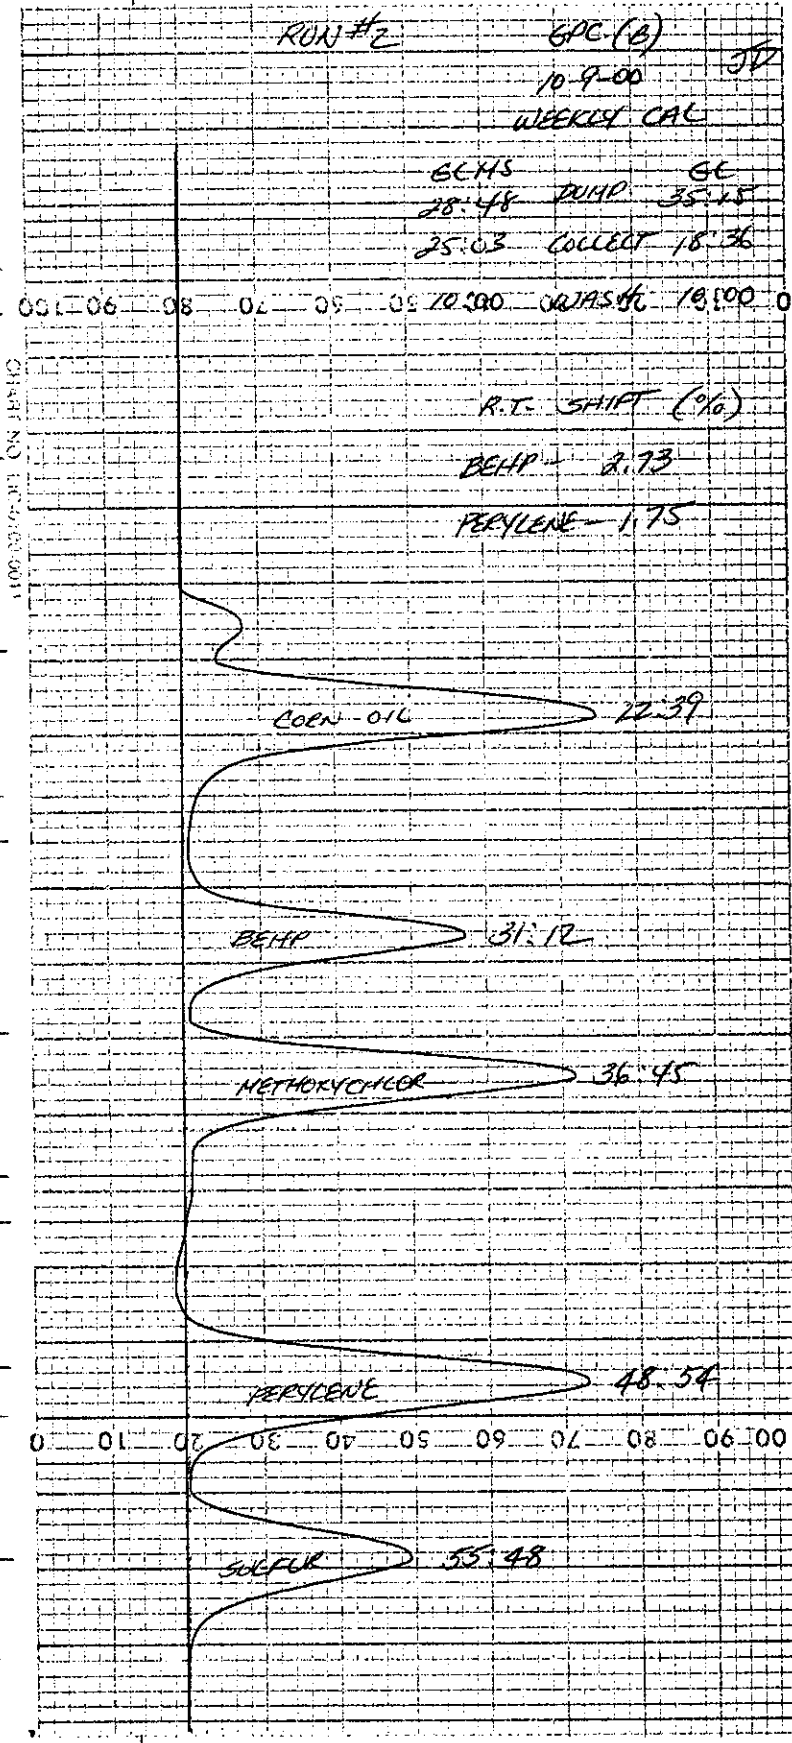 RUN #2 GPC (B)
10-9-00 JD
WEEKLY CAL
GCMS GC
28:48 DUMP 35:15
25:03 COLLECT 18:36
10:00 WASH 10:00
100 90 80 70 60 50 0
R.T. SHIFT (%)
BEHP - 2.73
PERYLENE - 1.75
CORN OIL 22:39
BEHP 31:12
METHOXYCHLOR 36:45
PERYLENE 48:54
0 10 20 30 40 50 60 70 80 90 00
SULFUR 55:48